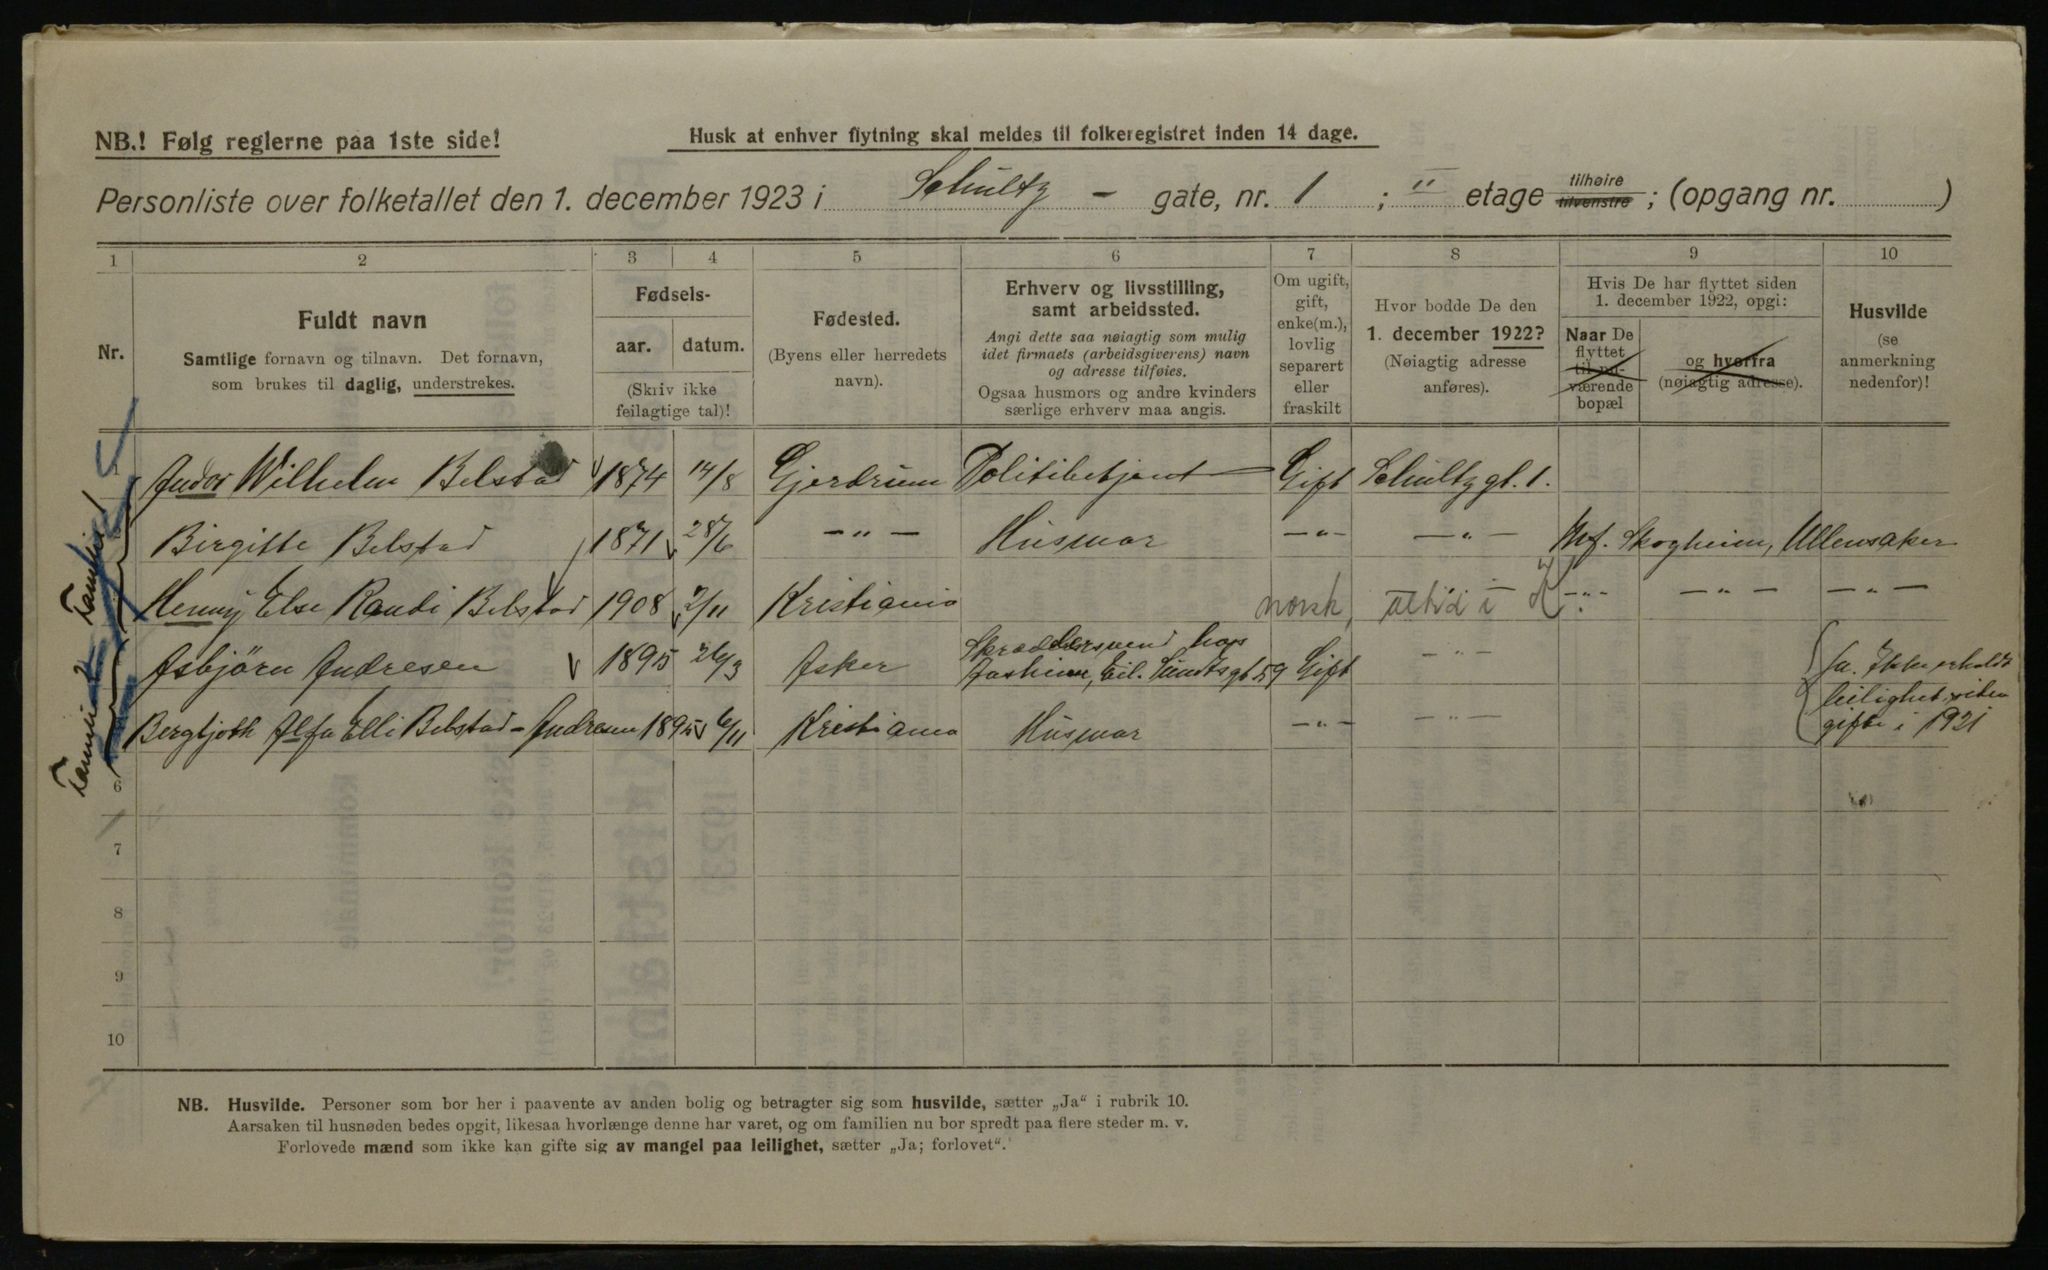 NB.! Følg reglerne paa 1ste side!
Husk at enhver flytning skal meldes til folkeregistret inden 14 dage.
Personliste over folketallet den 1. december 1923 i Schultz - gate, nr. 1 ; II etage tilhøire tilvenstre ; (opgang nr. )
1 2 3 4 5 6 7 8 9 10
Nr.
Fuldt navn
Samtlige fornavn og tilnavn. Det fornavn,
som brukes til daglig, understrekes.
Fødsels-
aar. datum.
(Skriv ikke
feilagtige tal)!
Fødested.
(Byens eller herredets
navn).
Erhverv og livsstilling,
samt arbeidssted.
Angi dette saa nøiagtig som mulig
idet firmaets (arbeidsgiverens) navn
og adresse tilføies.
Ogsaa husmors og andre kvinders
særlige erhverv maa angis.
Om ugift,
gift,
enke(m.),
lovlig
separert
eller
fraskilt
Hvor bodde De den
1. december 1922?
(Nøiagtig adresse
anføres).
Hvis De har flyttet siden
1. december 1922, opgi:
Naar De
flyttet
til nu-
værende
bopæl
og hvorfra
(nøiagtig adresse).
Husvilde
(se
anmerkning
nedenfor)!
Andor Wilhelm Belstad 1874 14/8 Gjerdrum Politibetjent Gift Schultzgt. 1.
Birgitte Belstad 1871 28/6 -"- Husmor -"- -"- Skogheim, Ullensaker
Henny Else Randi Belstad 1908 2/11 Kristiania norsk, altid i K. -"- -"- -"-
Asbjörn Andresen 1895 26/3 Asker Skræddersvend hos
Aasheim, Eil. Sundtsgt. 59 Gift -"- Ja. Ikke erholdt
leilighet siden
gifte i 1921
Bergljoth Alfa Elli Belstad-Andresen 1895 6/11 Kristiania Husmor -"- -"-
6
7
8
9
10
NB. Husvilde. Personer som bor her i paavente av anden bolig og betragter sig som husvilde, sætter „Ja“ i rubrik 10.
Aarsaken til husnøden bedes opgit, likesaa hvorlænge denne har varet, og om familien nu bor spredt paa flere steder m. v.
Forlovede mænd som ikke kan gifte sig av mangel paa leilighet, sætter „Ja; forlovet“.